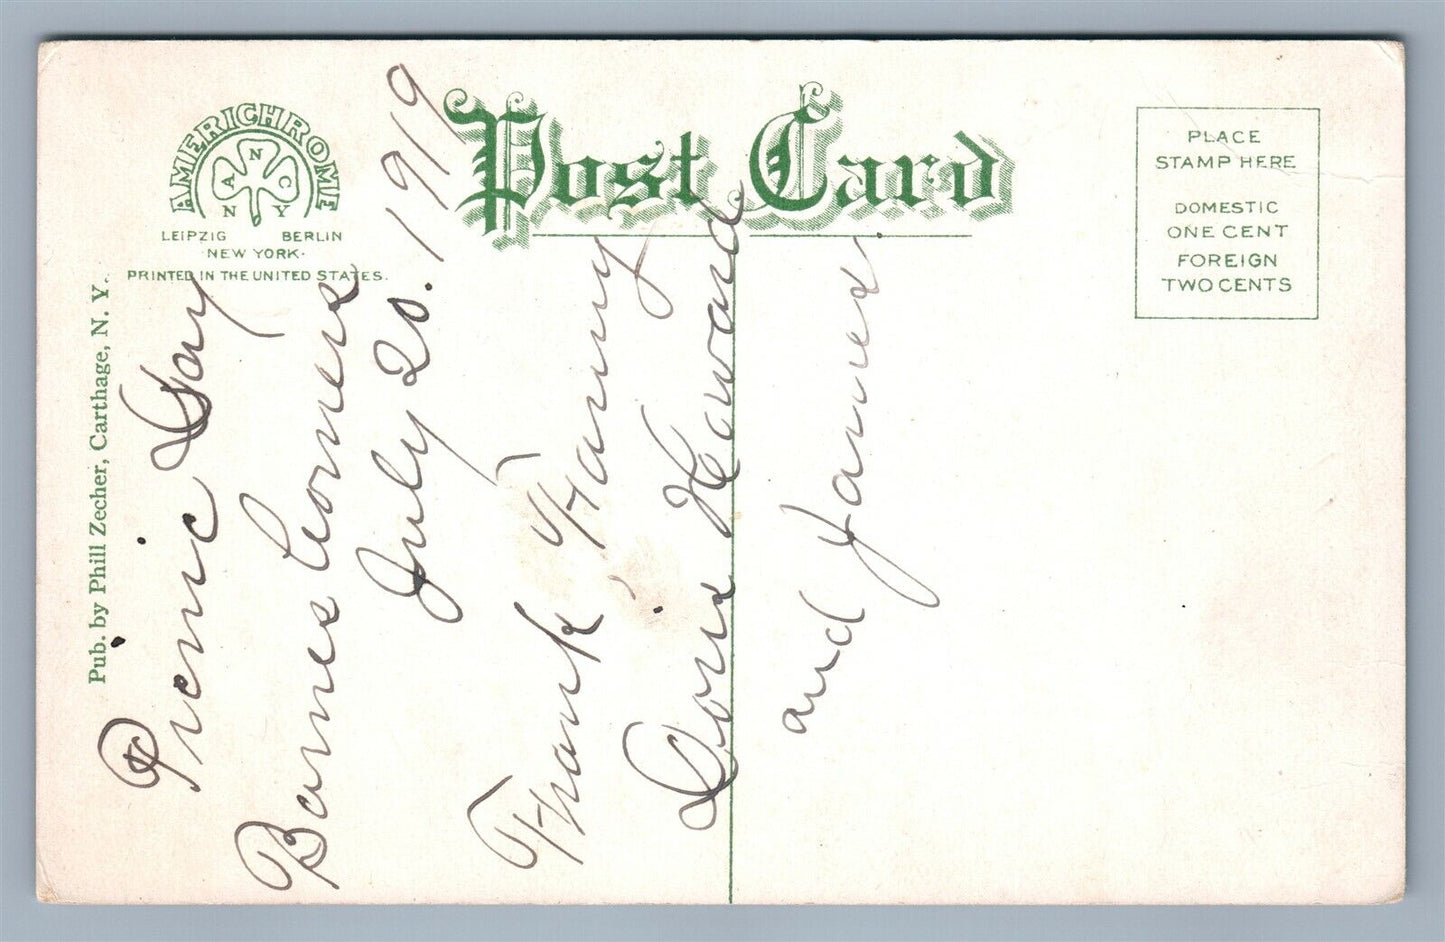 AMERICHROME
A N C
N Y
LEIPZIG BERLIN
·NEW YORK·
PRINTED IN THE UNITED STATES.
Post Card
PLACE
STAMP HERE
DOMESTIC
ONE CENT
FOREIGN
TWO CENTS
Pub. by Phill Zecher, Carthage, N. Y.
Picnic Day
Barnes Corners
July 20. 1919
Frank Fanny
Doris Howard
and James.